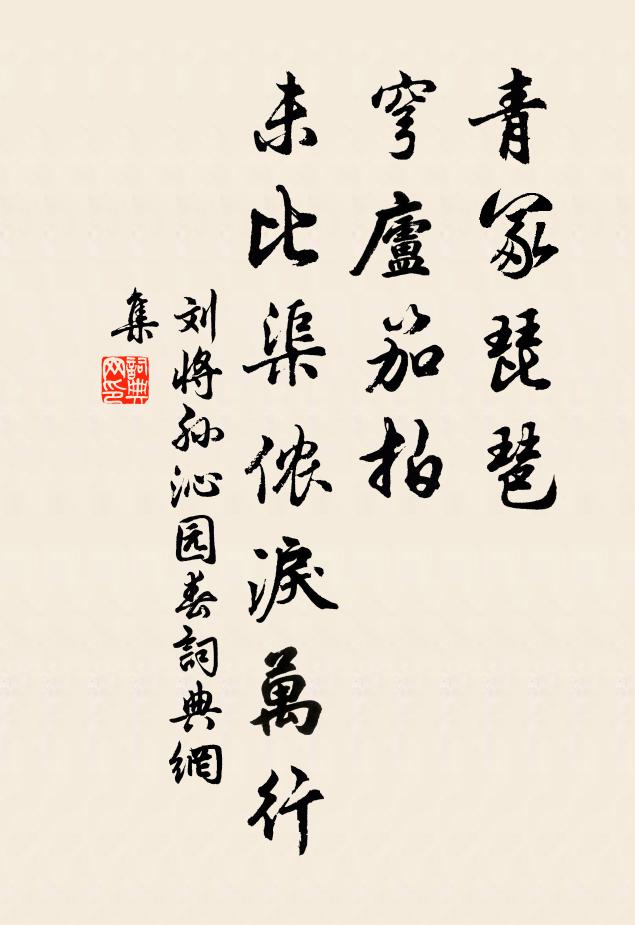 青冢琵琶
穹廬笳拍
未比渠侬淚萬行
刘将孙沁园春詞典網
集
詞典
网印